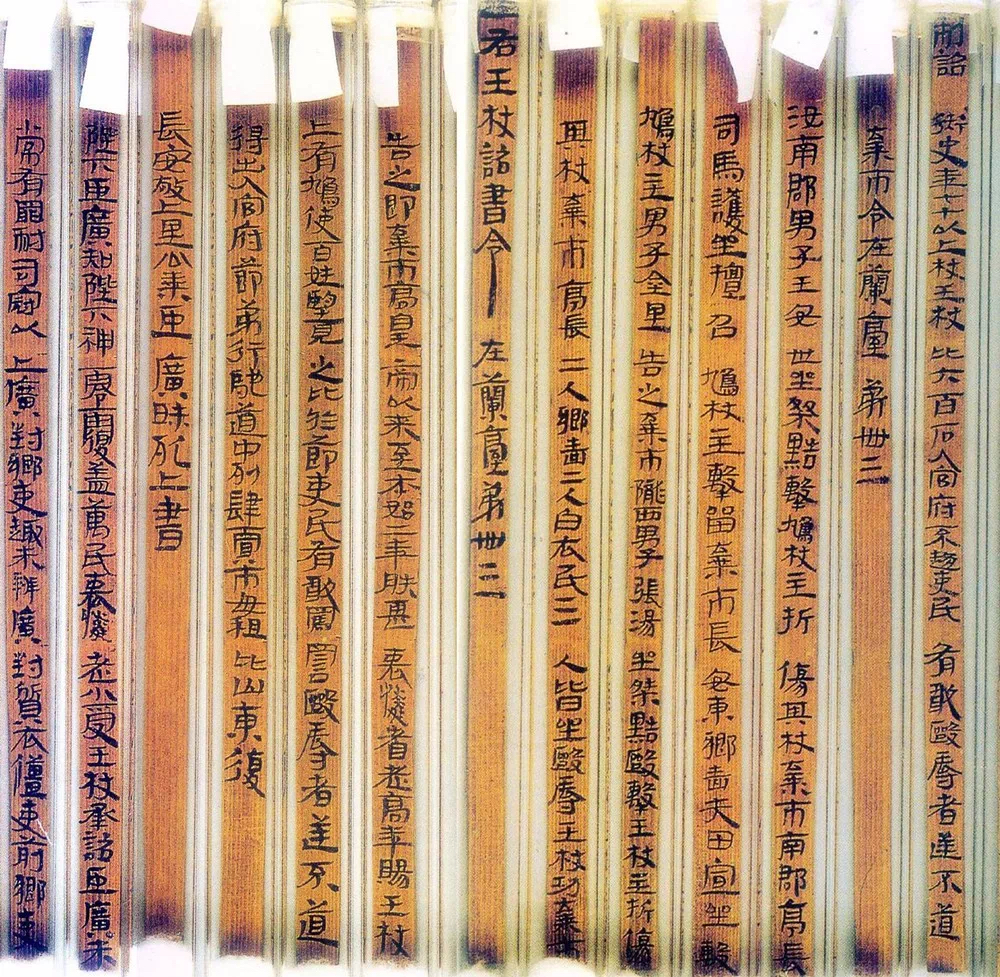 制詔御史年七十以上杖王杖比六百石入官府不趨吏民有敢毆辱者逆不道
棄市令在蘭臺第卌三
汝南郡男子王安世坐桀黠擊鳩杖主折傷其杖棄市南郡亭長
司馬護坐擅召鳩杖主擊留棄市長安東鄉嗇夫田宣坐擊
鳩杖主男子金里告之棄市隴西男子張湯坐桀黠毆擊王杖主折傷
其杖棄市亭長二人鄉嗇二人白衣民三人皆坐毆辱王杖功棄市
右王杖詔書令在蘭臺第卌三
告之即棄市高皇帝以來至本始二年朕甚哀憐耆老高年賜王杖
上有鳩使百姓望見之比於節吏民有敢罵詈毆辱者逆不道
得出入官府節第行馳道中列肆賈市毋租比山東復
長安敬上里公乘臣廣昧死上書
陛下臣廣知陛下神零覆蓋萬民哀憐老小受王杖承詔臣廣未
常有罪耐司寇以上廣對鄉吏趣未辨廣對質衣僵吏前鄉吏